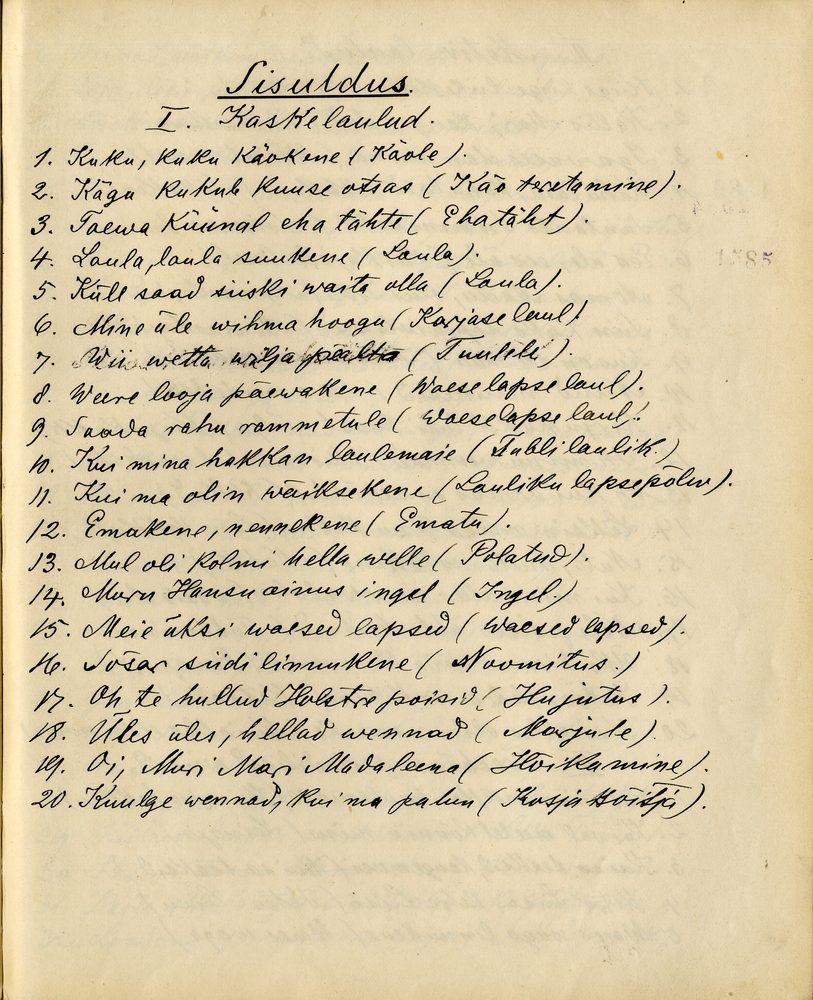 Sisuldus.
I. Kaskelaulud.
1. Kuku, kuku Käokene (Käole).
2. Kägu kukub kuuse otsas (Käo teretamine).
3. Taewa küünal eha tähte (Ehatäht).
4. Laula, laula suukene (Laula).
5. Küll saad siiski waita olla (Laula).
6. Mine üle wihma hoogu (Karjase laul)
7. Wii wetta wilja päältä (Tuulele).
8. Weere looja päewakene (Waeselapse laul).
9. Saada rahu rammetule (Waeselapse laul).
10. Kui mina hakkan laulemaie (Tubli laulik.)
11. Kui ma olin wäiksekene (Lauliku lapsepõlw).
12. Emakene, nennekene (Ematu).
13. Mul oli kolmi hella welle (Polatud).
14. Maru Hansu ainus ingel (Ingel.)
15. Meie üksi waesed lapsed (Waesed lapsed).
16. Sõsar siidi linnukene (Noomitus.)
17. Oh, te hullud Holstre poisid (Hujutus).
18. Üles üles, hellad wennad (Marjule).
19. Oi, Mari Mari Madaleena (Hõikamine).
20. Kuulge wennad, kui ma palun (Kosja sõitja).
1785